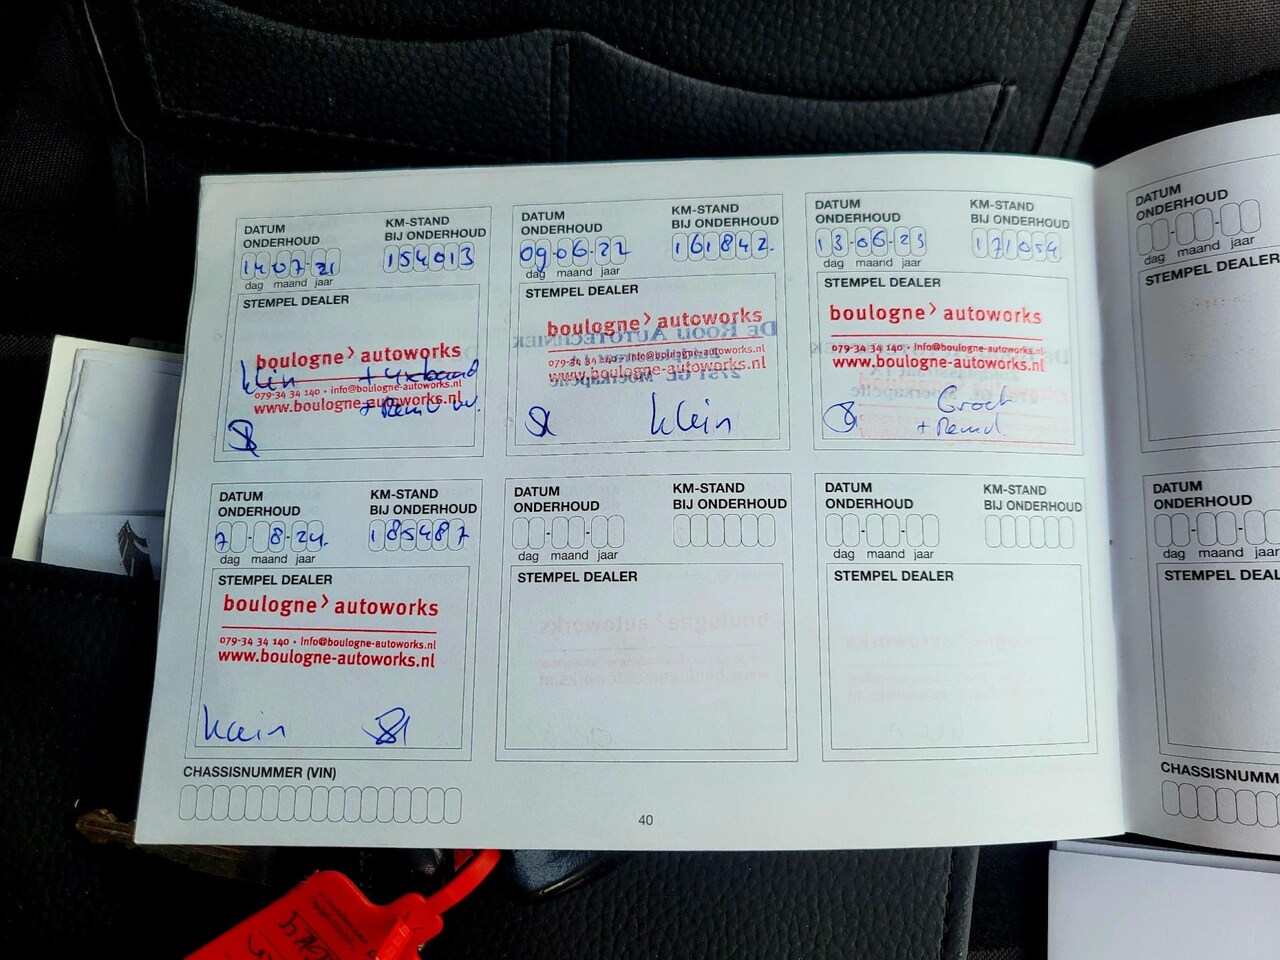 DATUM ONDERHOUD
KM-STAND BIJ ONDERHOUD
14-07-21
154013
dag maand jaar
STEMPEL DEALER
boulogne> autoworks
klein
079-34 34 140 • info@boulogne-autoworks.nl
www.boulogne-autoworks.nl
DATUM ONDERHOUD
KM-STAND BIJ ONDERHOUD
09-06-22
161842.
dag maand jaar
STEMPEL DEALER
boulogne> autoworks
DE ROOIJ AUTOTECHNIEK
079-34 34 140 • Info@boulogne-autoworks.nl
www.boulogne-autoworks.nl
klein
DATUM ONDERHOUD
KM-STAND BIJ ONDERHOUD
13-06-23
171054
dag maand jaar
STEMPEL DEALER
boulogne> autoworks
079-34 34 140 • Info@boulogne-autoworks.nl
www.boulogne-autoworks.nl
Groot
DATUM ONDERHOUD
KM-STAND BIJ ONDERHOUD
7-8-24.
185487
dag maand jaar
STEMPEL DEALER
boulogne> autoworks
079-34 34 140 • Info@boulogne-autoworks.nl
www.boulogne-autoworks.nl
klein
DATUM ONDERHOUD
KM-STAND BIJ ONDERHOUD
dag maand jaar
STEMPEL DEALER
DATUM ONDERHOUD
KM-STAND BIJ ONDERHOUD
dag maand jaar
STEMPEL DEALER
CHASSISNUMMER (VIN)
40
DATUM ONDERHOUD
dag maand jaar
STEMPEL DEALER
DATUM ONDERHOUD
dag maand jaar
STEMPEL DEAL
CHASSISNUMM